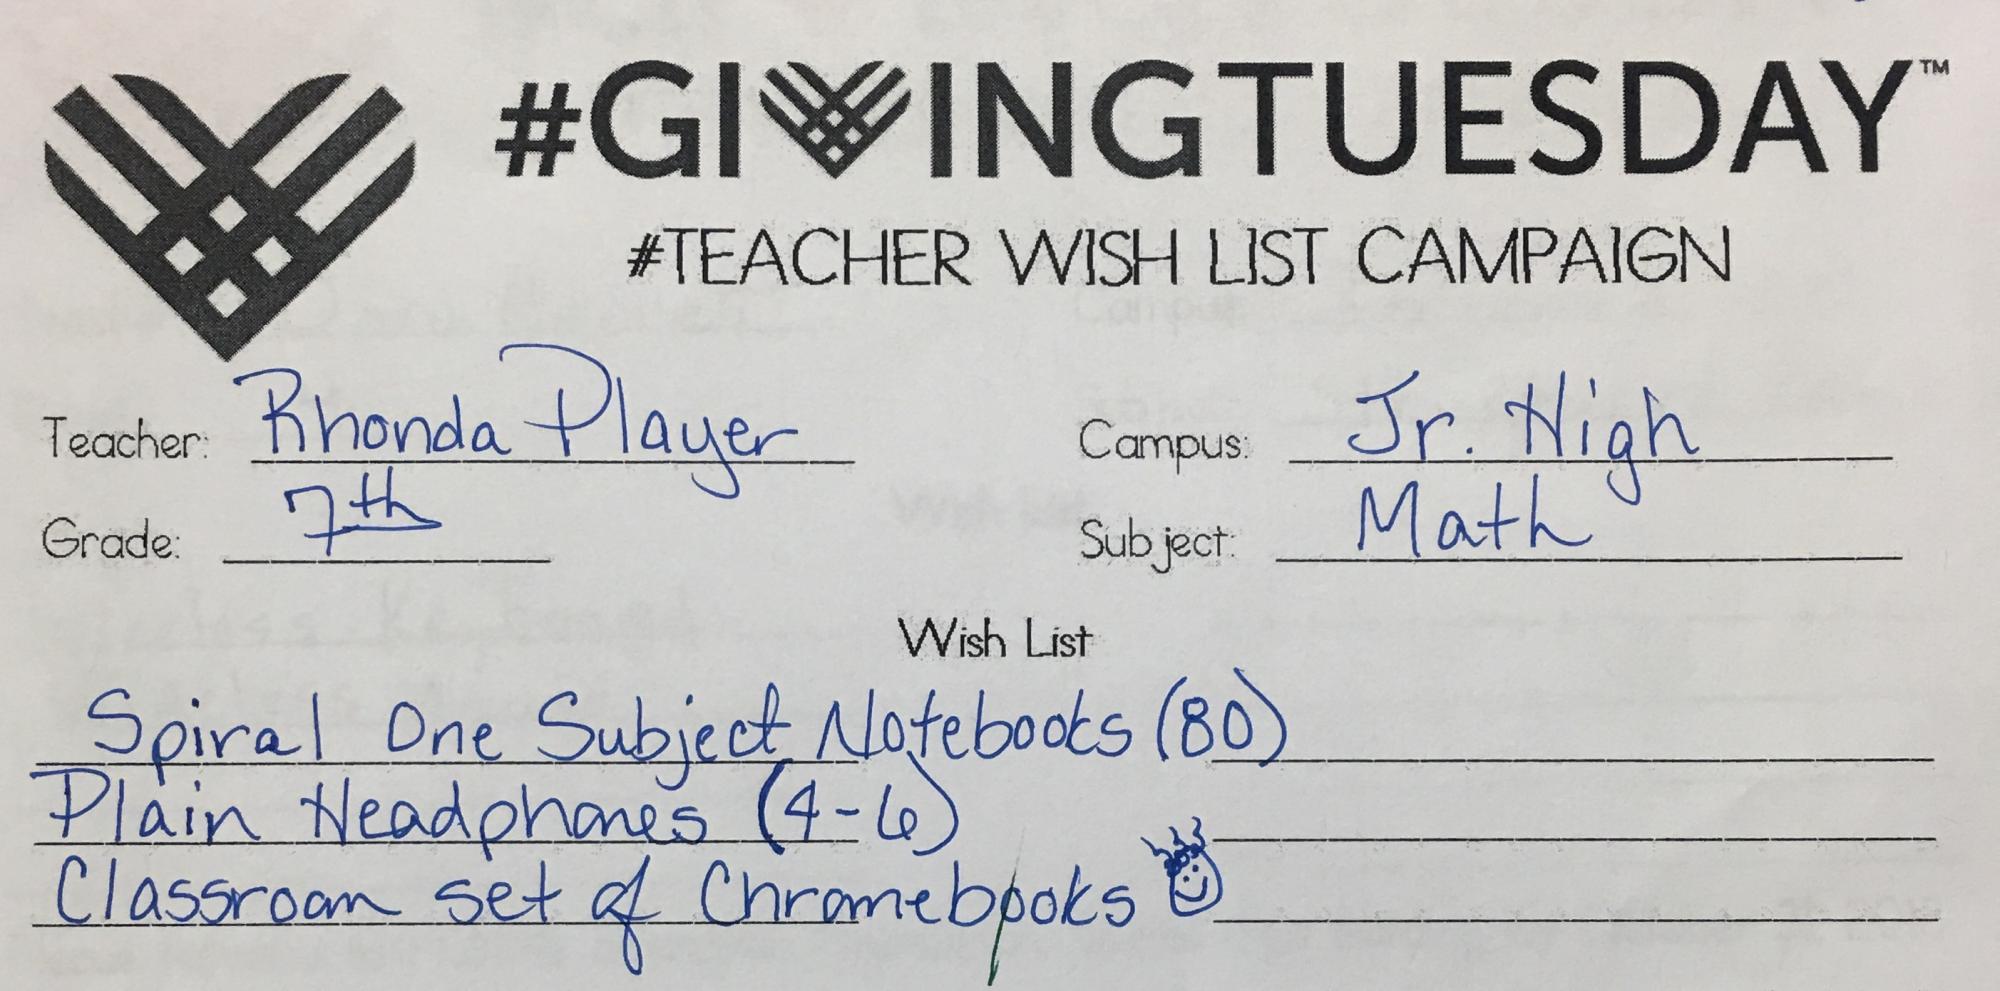 #GIVINGTUESDAY™
#TEACHER WISH LIST CAMPAIGN
Teacher: Rhonda Player Campus: Jr. High
Grade: 7th Subject: Math
Wish List
Spiral One Subject Notebooks (80)
Plain Headphones (4-6)
Classroom set of Chromebooks